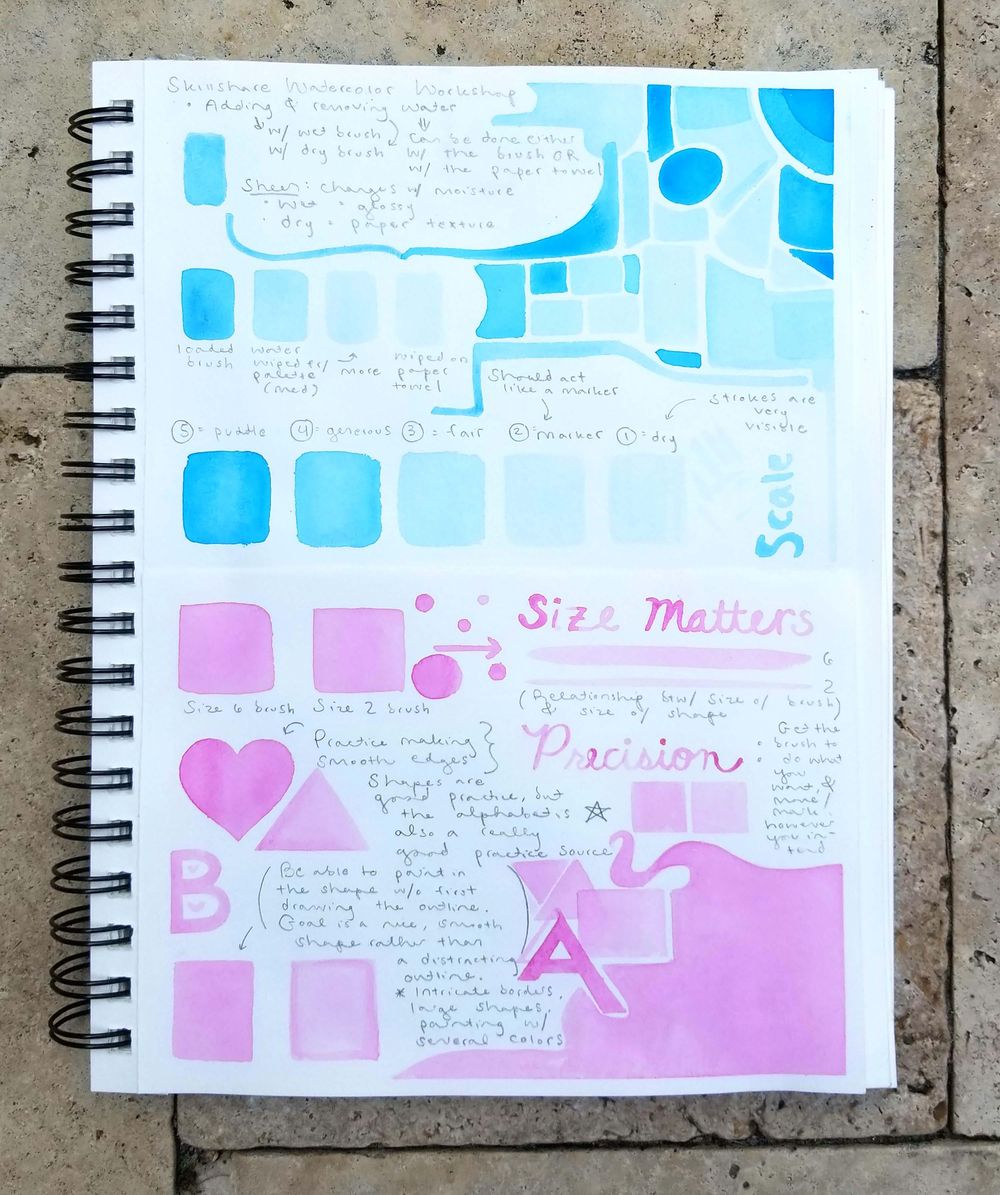 Skillshare Watercolor Workshop
• Adding & removing water
w/ wet brush
w/ dry brush
can be done either
w/ the brush OR
w/ the paper towel
Sheen: changes w/ moisture
• wet = glossy
• dry = paper texture
loaded
brush
water
wiped fr/
palette
(med)
more
wiped on
paper
towel
Should act
like a marker
Strokes are
very
visible
5 = puddle
4 = generous
3 = fair
2 = marker
1 = dry
Scale
Size Matters
6
2
Size 6 brush
Size 2 brush
(Relationship btw/ size of brush)
& size of shape
Practice making
smooth edges
Precision
Get the
• brush to
• do what
you
want, &
move/
mark
however
you in-
tend
Shapes are
good practice, but
the alphabet is
also a really
good practice source
B
Be able to paint in
the shape w/o first
drawing the outline.
Goal is a nice, smooth
shape rather than
a distracting
outline.
A
* Intricate borders,
large shapes,
painting w/
several colors